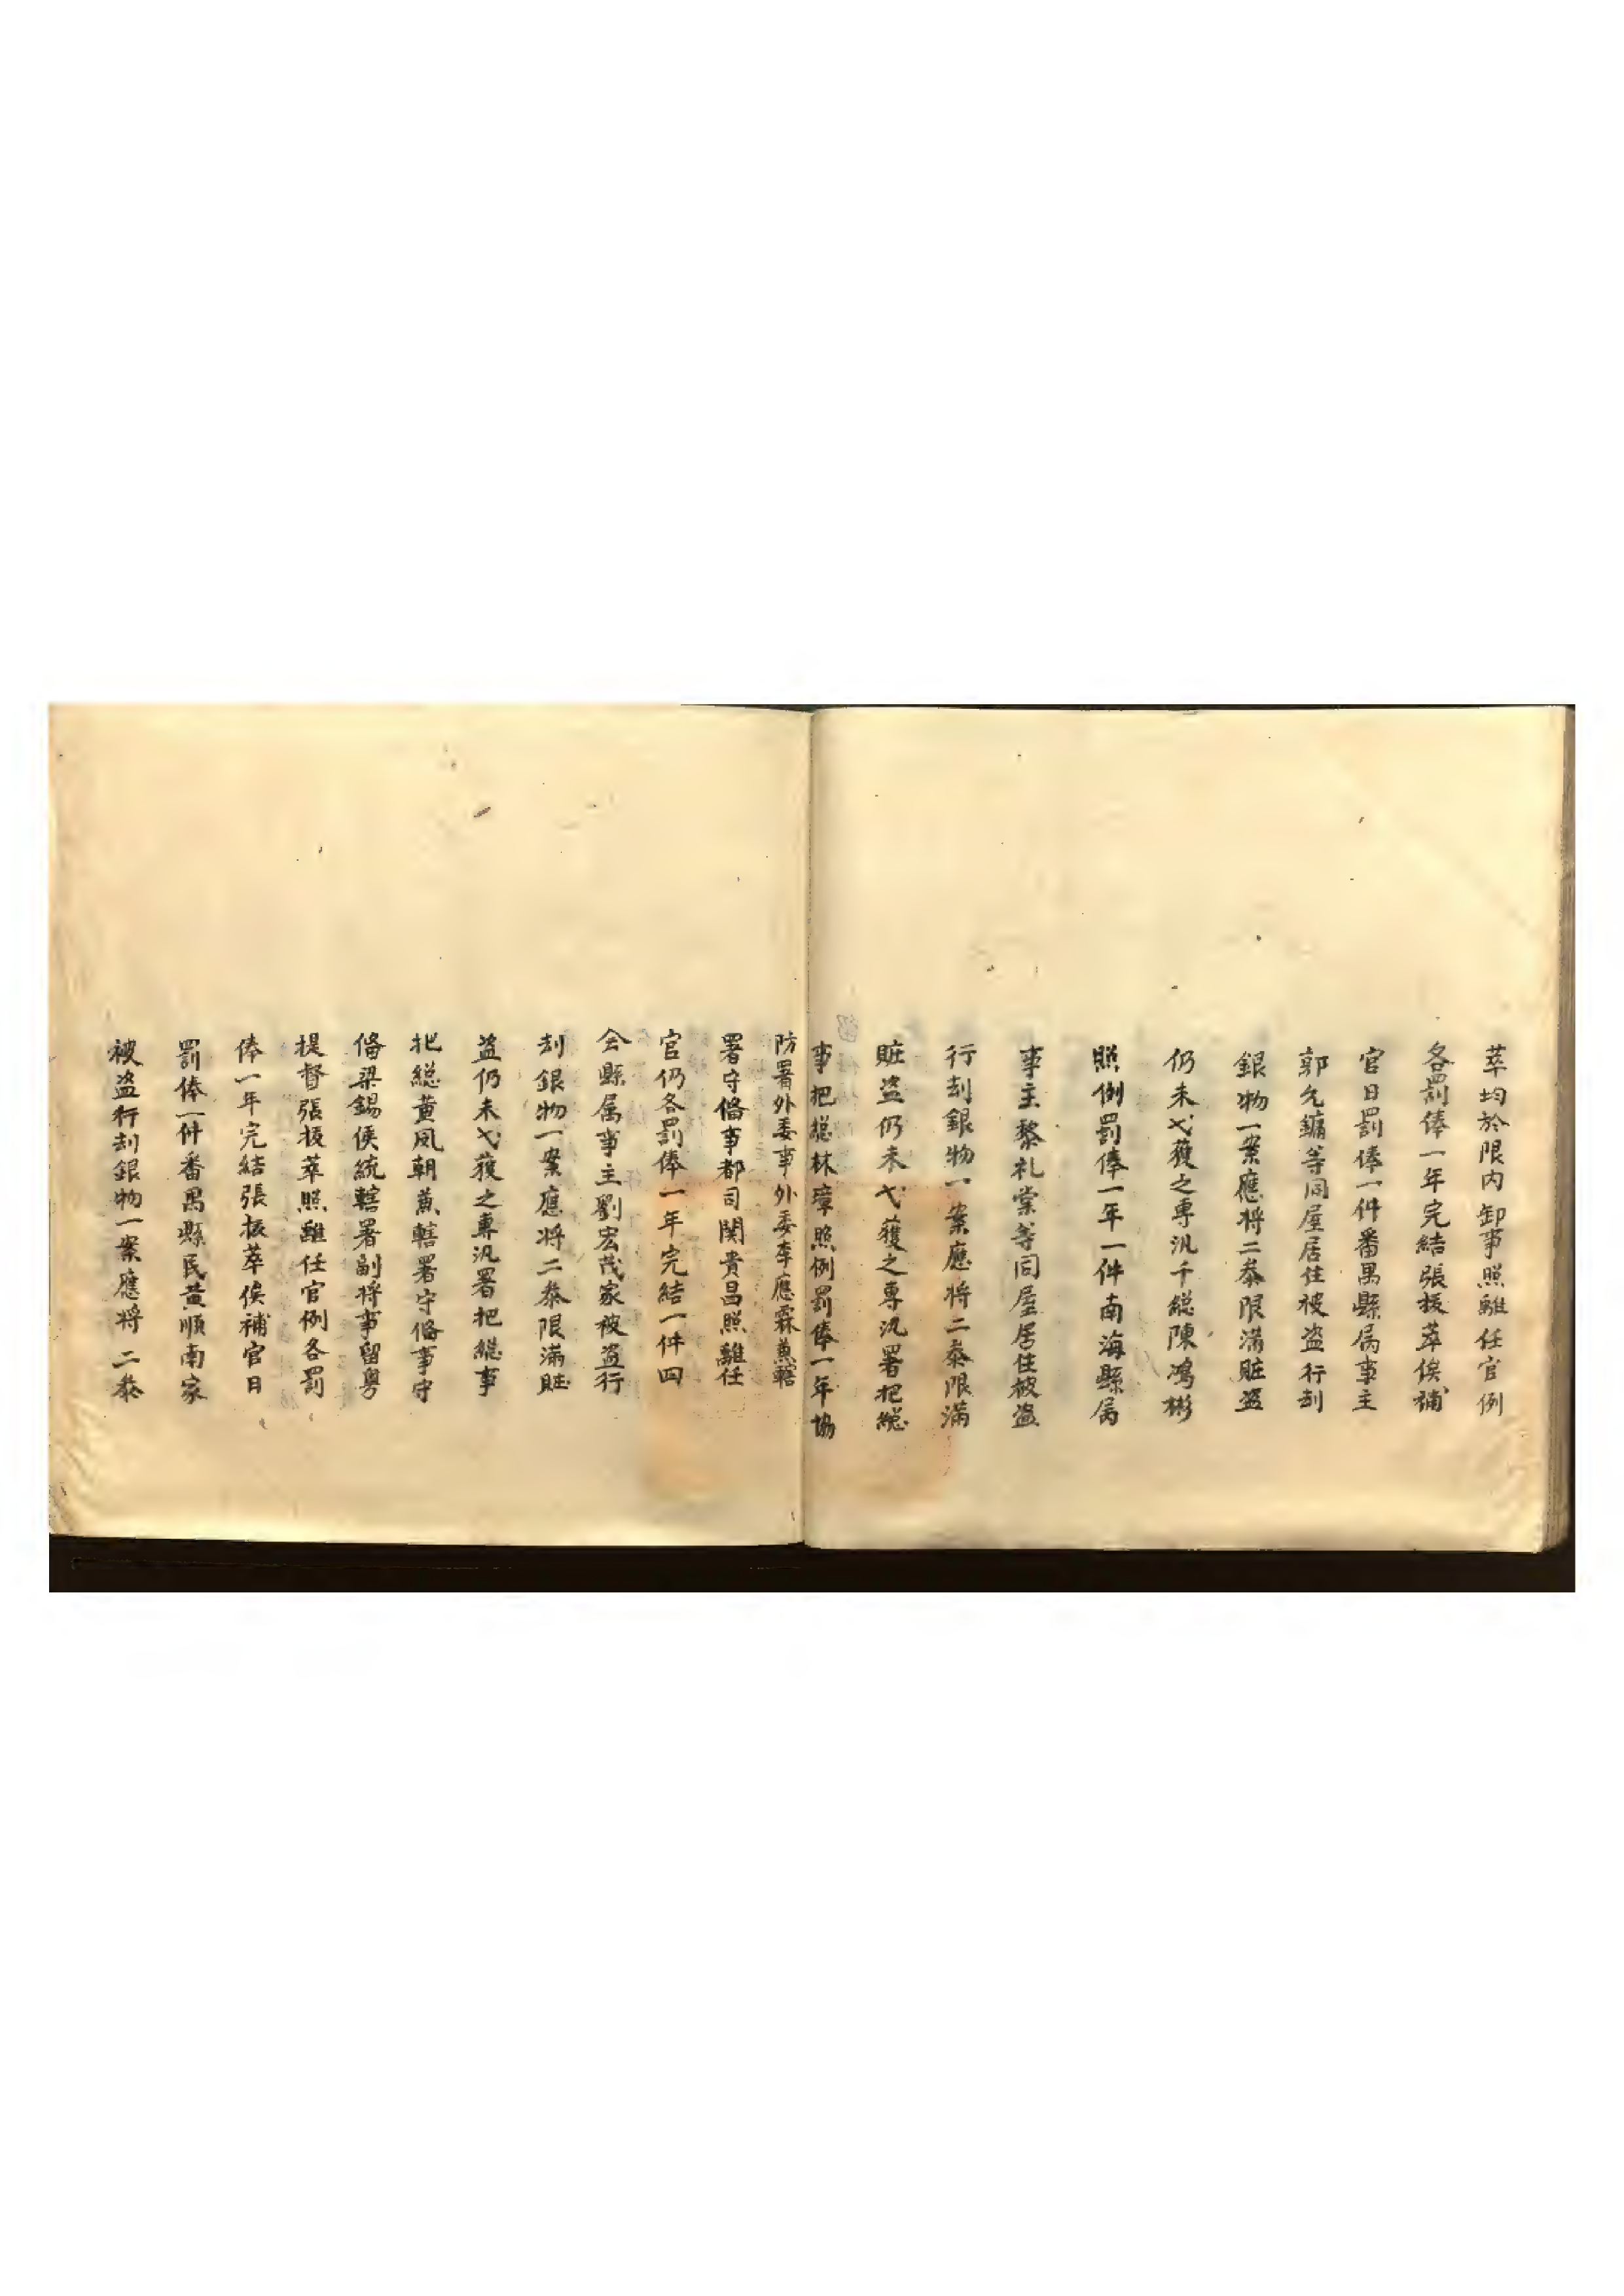 萃均於限内卸事照離任官例
各罰俸一年完結張拔萃俟補
官日罰俸一件番禺縣属事主
郭允鏞等同屋居住被盗行刦
銀物一案應将二叅限滿賍盗
仍未弋獲之專汛千緫陳鴻彬
照例罰俸一年一件南海縣属
事主黎礼棠等同屋居住被盗
行刦銀物一案應将二叅限滿
賍盗仍未弋獲之專汛署把緫
事把緫林璋照例罰俸一年協
防署外委事外委李應霖蒹轄
署守俻事都司関貴昌照離任
官仍各罰俸一年完結一件四
会縣属事主劉宏茂家被盗行
刦銀物一案應将二叅限滿賍
盗仍未弋獲之專汛署把緫事
把緫黄凤朝蒹轄署守俻事守
俻梁錫侯統轄署副将事留粤
提督張拔萃照離任官例各罰
俸一年完結張拔萃俟補官日
罰俸一件番禺縣民黄順南家
被盗行刦銀物一案應将二叅